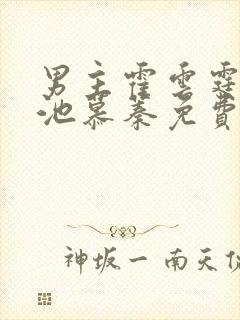 男主霍雲霆
池慕秦免費
神坂一 南天